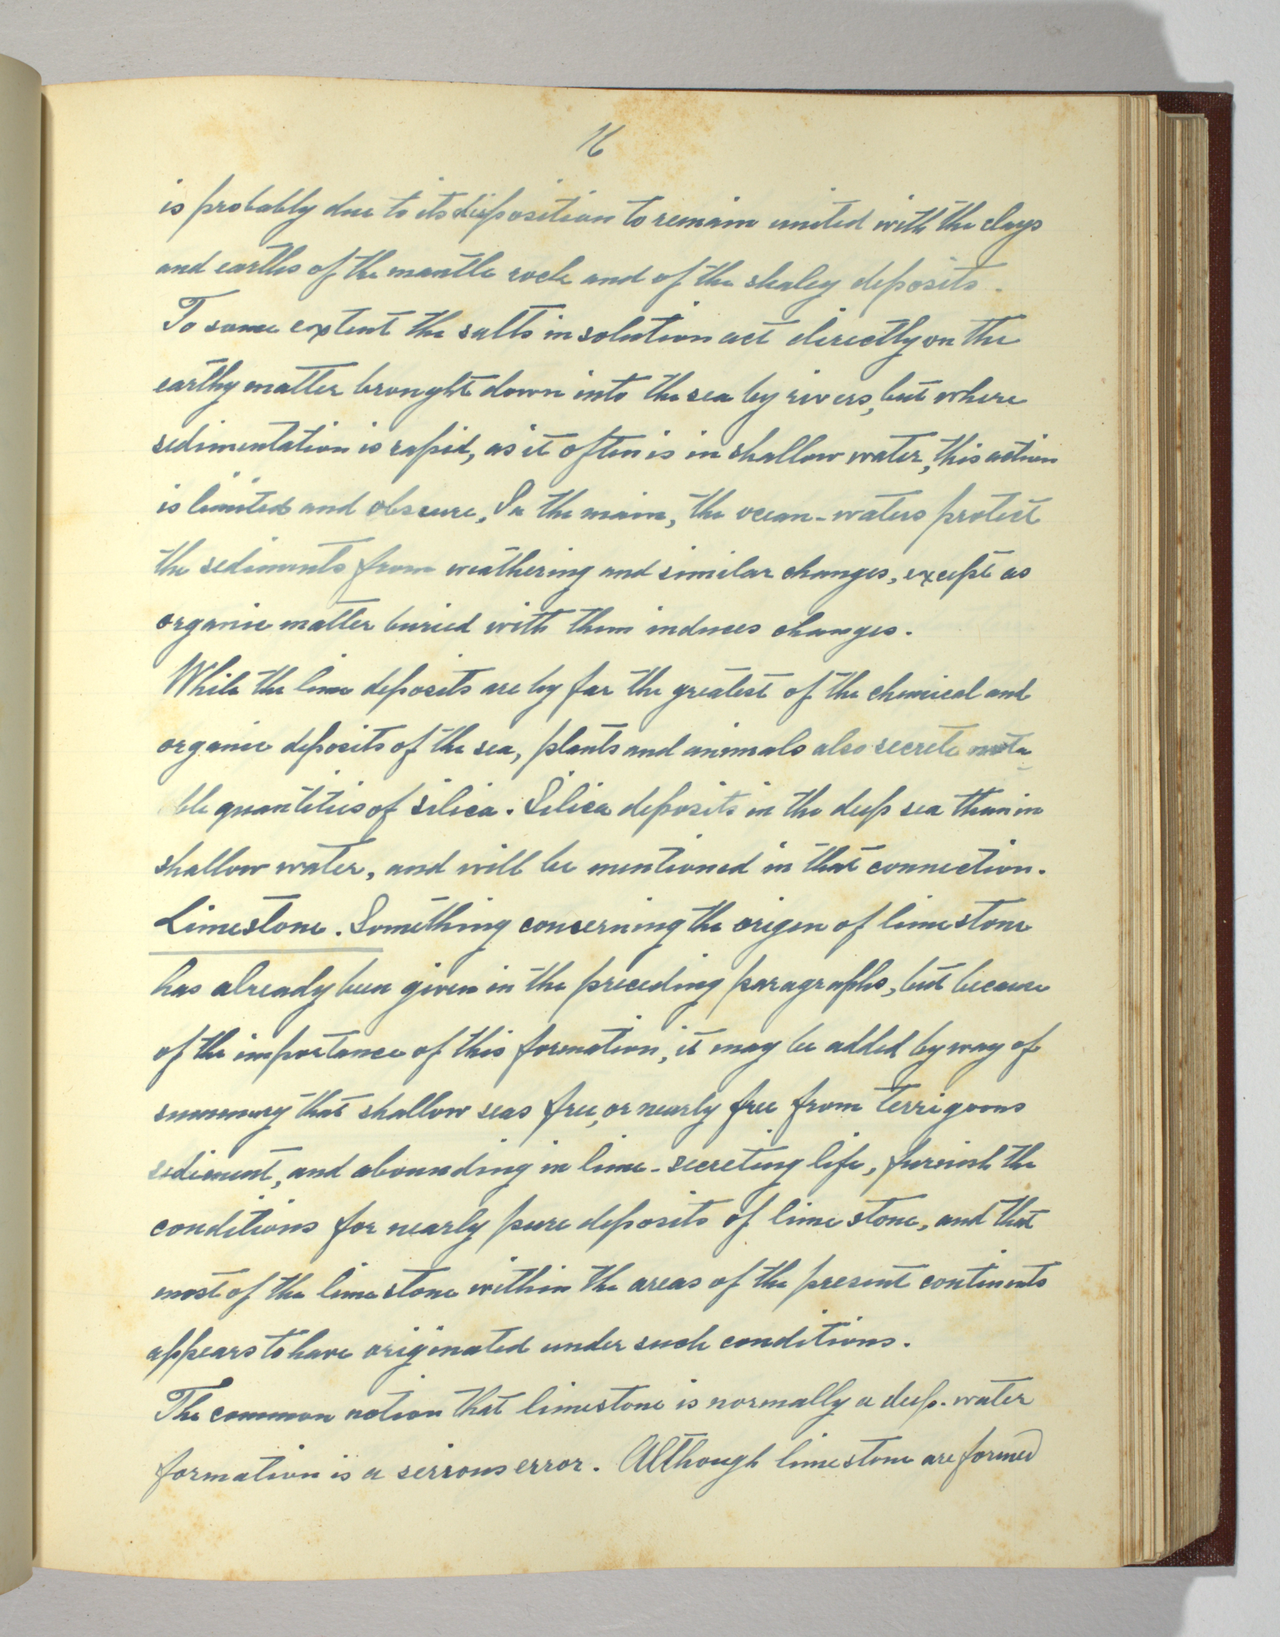 16
is probably due to its disposition to remain united with the clays
and earths of the mantle rock and of the shaley deposits.
To some extent the salts in solution act directly on the
earthy matter brought down into the sea by rivers, but where
sedimentation is rapid, as it often is in shallow water, this action
is limited and obscure, In the main, the ocean-waters protect
the sediments from weathering and similar changes, except as
organic matter buried with them induces changes.
While the lime deposits are by far the greatest of the chemical and
organic deposits of the sea, plants and animals also secrete nota-
ble quantities of silica. Silica deposits in the deep sea than in
shallow water, and will be mentioned in that connection.
Limestone. Something concerning the origen of limestone
has already been given in the preceding paragraphs, but because
of the importance of this formation, it may be added by way of
summary that shallow seas free, or nearly free from terrigoons
sediment, and abounding in lime-secreting life, furnish the
conditions for nearly pure deposits of lime stone, and that
most of the lime stone within the areas of the present continents
appears to have originated under such conditions.
The common notion that limestone is normally a deep-water
formation is a serrous error. Although lime stone are formed